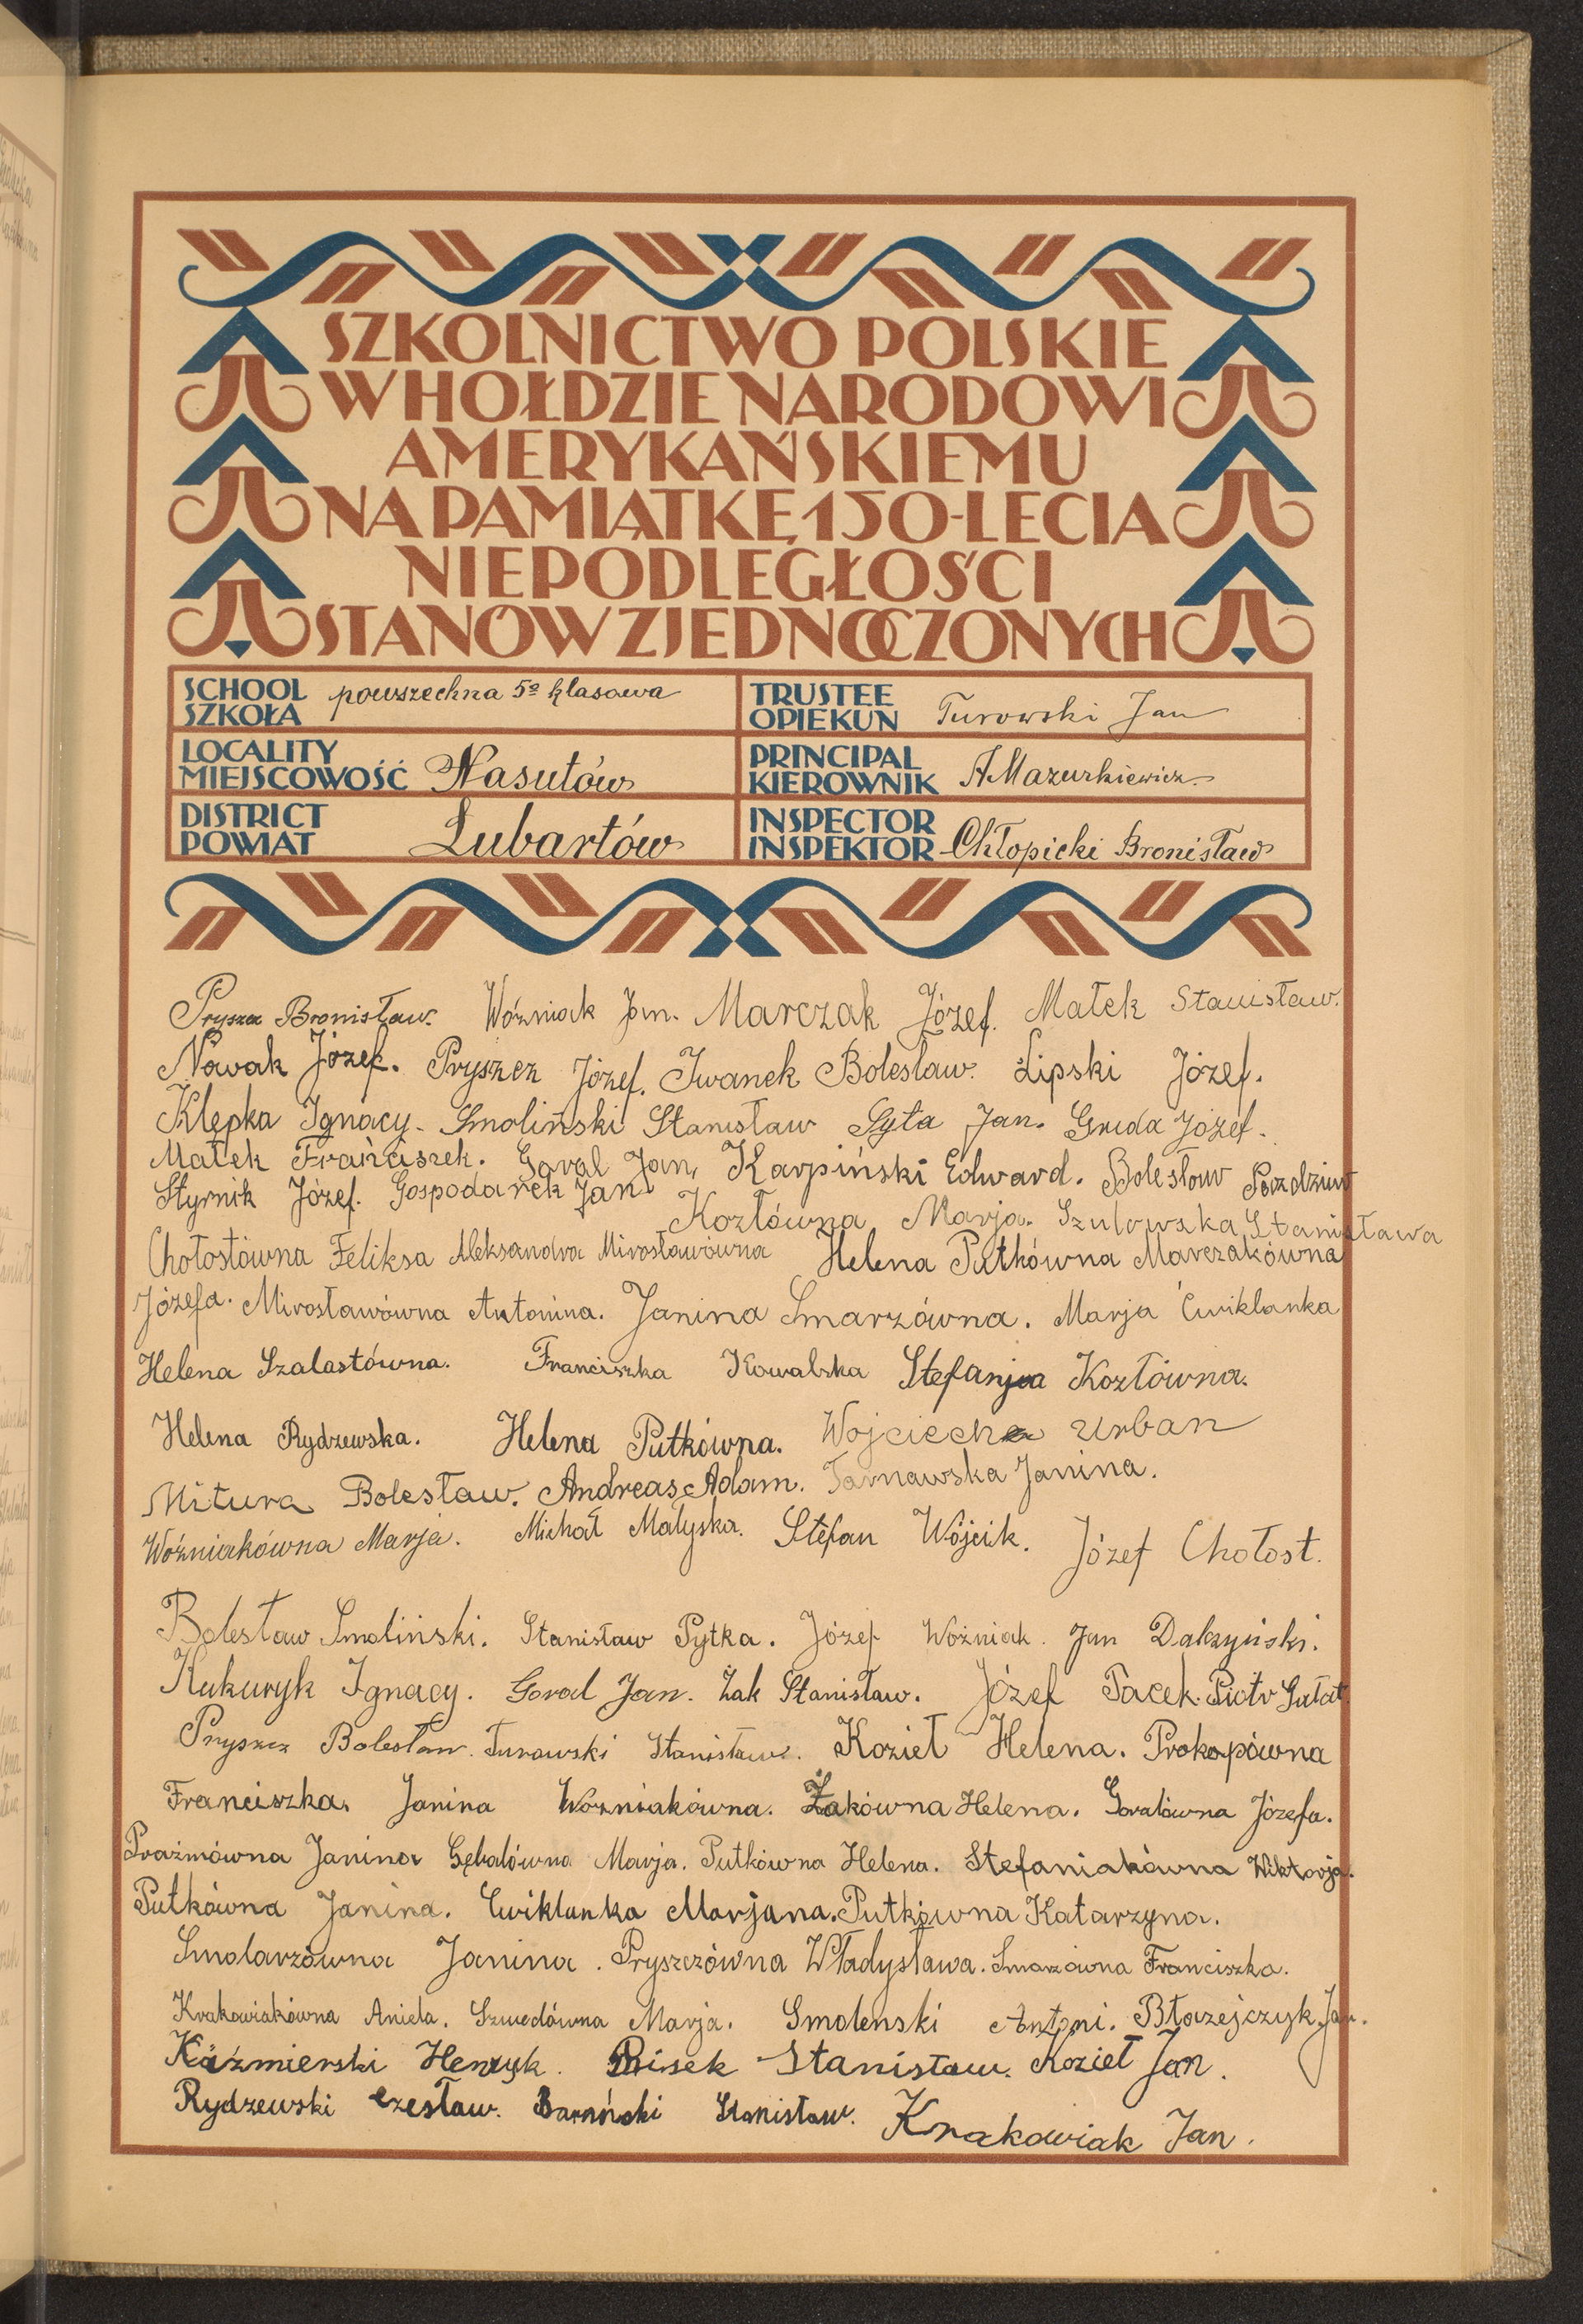 SZKOLNICTWO POLSKIE
W HOŁDZIE NARODOWI
AMERYKAŃSKIEMU
NA PAMIĄTKĘ 150-LECIA
NIEPODLEGŁOŚCI
STANÓW ZJEDNOCZONYCH
SCHOOL
SZKOŁA powszechna 5º klasowa
TRUSTEE
OPIEKUN Turowski Jan
LOCALITY
MIEJSCOWOŚĆ Nasutów
PRINCIPAL
KIEROWNIK AMazurkiewicz
DISTRICT
POWIAT Lubartów
INSPECTOR
INSPEKTOR Chłopicki Bronisław
Bronisław. Woźniak Jan. Marczak Józef. Małek Stanisław.
Nowak Józef. Pryszcz Józef. Iwanek Bolesław. Lipski Józef.
Klępka Ignacy. Smoliński Stanisław Syta Jan. Gruda Józef.
Małek Franciszek. Goral Jan, Karpiński Edward. Bolesław
Styrnik Józef. Gospodarek Jan
Kozłówna Marja. Szulowska Stanisława
Chołostówna Feliksa Aleksandra Mirosławówna Helena Putkówna Marczakówna
Józefa. Mirosławówna Antonina. Janina Smarzówna. Marja Ćwiklanka
Helena Szalastówna. Franciszka Kowalska Stefanja Kozłówna.
Helena Rydzewska. Helena Putkówna. Wojciech Urban
Mitura Bolesław. Andreas Adam. Tarnawska Janina.
Woźniakówna Marja. Michał Małyska. Stefan Wójcik. Józef Chołost.
Bolesław Smoliński. Stanisław Pytka. Józef Woźniak. Jan Dałczyński.
Kukuryk Ignacy. Goral Jan. Żak Stanisław. Józef Pacek. Piotr Sałat
Pryszcz Bolesław. Turowski Stanisław. Kozieł Helena. Prokopówna
Franciszka. Janina Woźniakówna. Żakówna Helena. Goralówna Józefa.
Prażmówna Janina Gębalówna Marja. Putkówna Helena. Stefaniakówna Wiktorja.
Putkówna Janina. Cwiklanka Marjana. Putkówna Katarzyna.
Smolarzówna Janina. Pryszczówna Władysława. Smarzówna Franciszka.
Krakowiakówna Aniela. Szwedówna Marja. Smolenski Antoni. Błazejczyk Jan.
Kaźmierski Henryk. Stanisław. Kozieł Jan.
Rydzewski Czesław. Barański Stanisław. Krakowiak Jan.